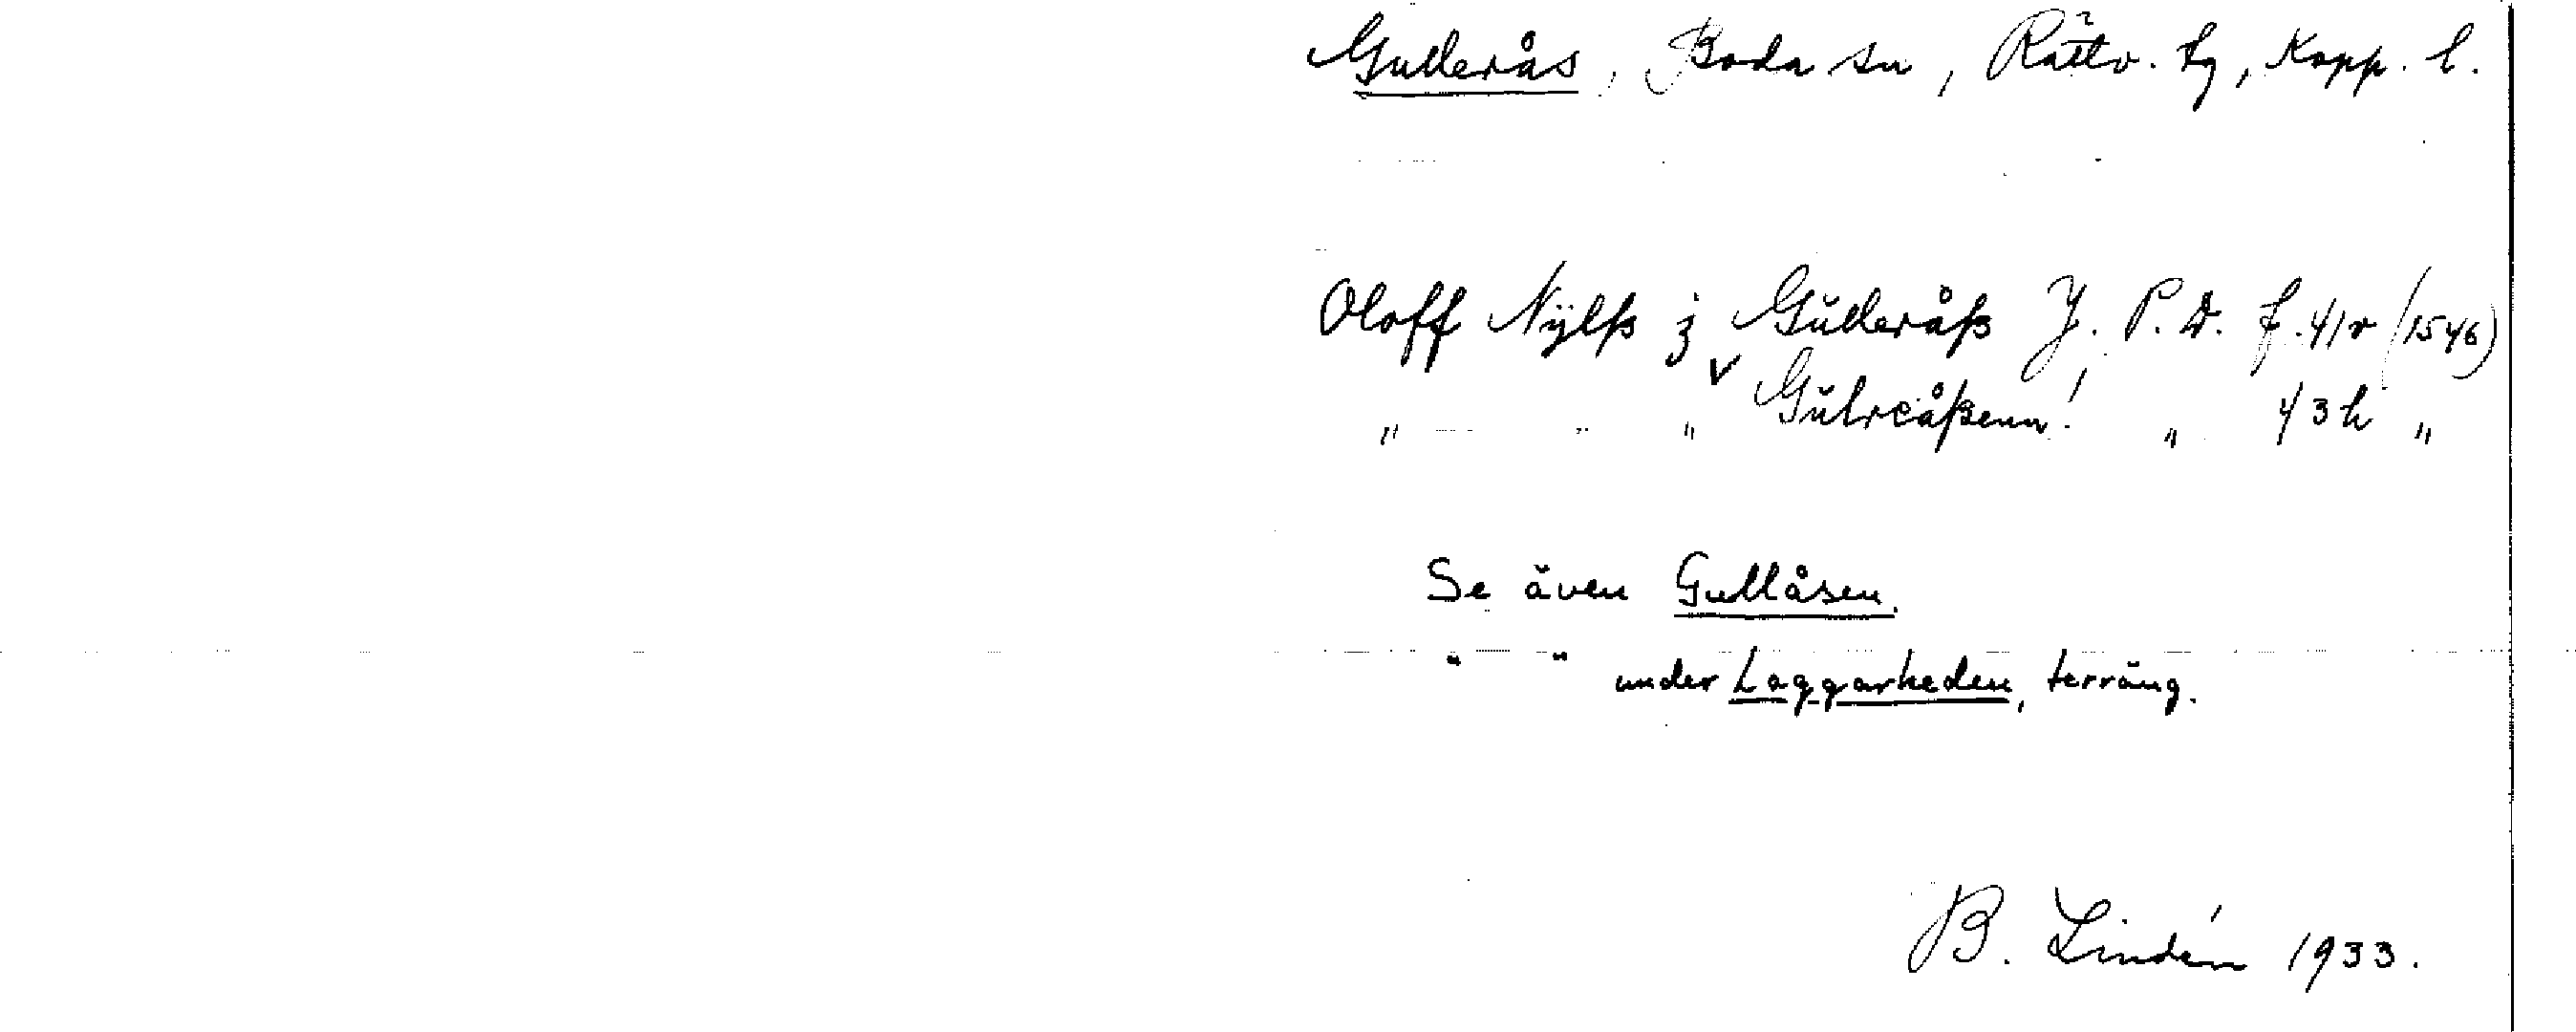 Gullerås, Boda sn, Rättv. tg, Kopp. l.
Oloff Nÿlß j Gŭlleråß J. P. D. f. 41r (1546)
„ „ „ v Gŭlreåßenn! „ 43 h „
Se även Gullåsen.
" " under Laggarheden, terräng.
B. Lindén 1933.